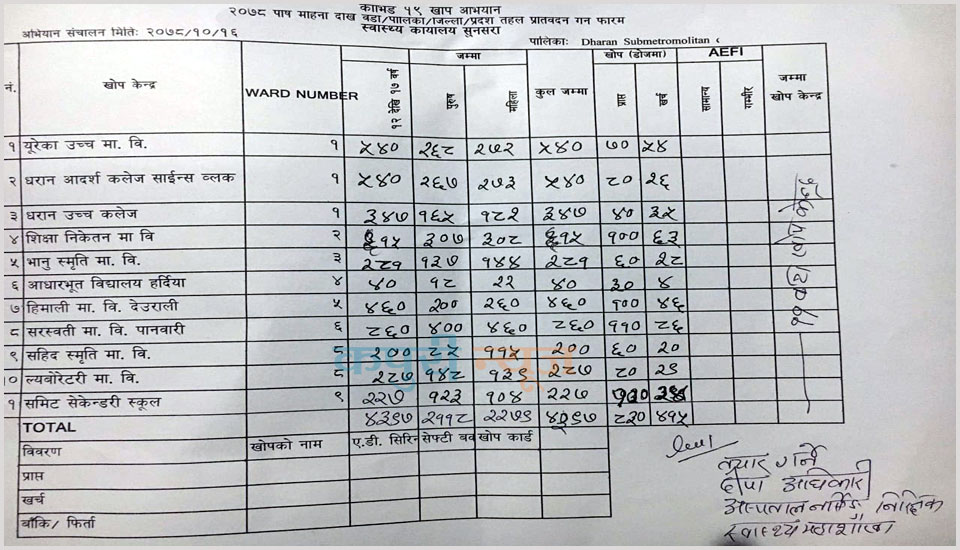 काभिड १९ खाप आभयान
२०७८ पाष माहना दाख वडा/पालिका/जिल्ला/प्रदश तहल प्रातवदन गन फारम
स्वास्थ्य कायालय सुनसरा
अभियान संचालन मितिः २०७८/१०/१६ पालिकाः Dharan Submetromolitan
नं. खोप केन्द्र WARD NUMBER १२ देखि १७ वर्ष जम्मा पुरुष महिला कुल जम्मा खोप (डोजमा) प्राप्त खर्च AEFI सामान्य गम्भीर जम्मा खोप केन्द्र
१ यूरेका उच्च मा. वि. १ ५४० २६८ २७२ ५४० ७० ५४
२ धरान आदर्श कलेज साईन्स व्लक १ ५४० २६७ २७३ ५४० ८० २६
३ धरान उच्च कलेज १ ३४७ १६५ १८२ ३४७ ४० ३५
४ शिक्षा निकेतन मा वि २ ६१५ ३०७ ३०८ ६१५ १०० ६३
५ भानु स्मृति मा. वि. ३ २८१ १३७ १४४ २८१ ६० २८
६ आधारभूत विद्यालय हर्दिया ४ ४० १८ २२ ४० ३० ४
७ हिमाली मा. वि. देउराली ५ ४६० २०० २६० ४६० १०० ४६
८ सरस्वती मा. वि. पानवारी ६ ८६० ४०० ४६० ८६० ११० ८६
९ सहिद स्मृति मा. वि. ८ २०० ८५ ११५ २०० ६० २०
१० ल्यवोरेटरी मा. वि. ८ २८७ १४८ १३९ २८७ ८० २९
१ समिट सेकेन्डरी स्कूल ९ २२७ १२३ १०४ २२७
TOTAL ४३९७ २११८ २२७९ ४३९७ ८२० ४१५
विवरण खोपको नाम ए.डी. सिरिन सेफ्टी बक खोप कार्ड
प्राप्त
खर्च
बाँकि/ फिर्ता
तयार गर्ने
दीपा अधिकारी
अस्पताल नर्सिङ निरिक्षक
कपुरी न्यूज